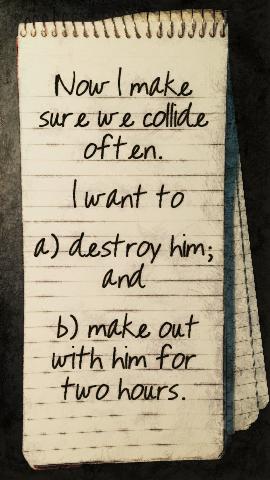 Now I make
sure we collide
often.
I want to
a) destroy him;
and
b) make out
with him for
two hours.